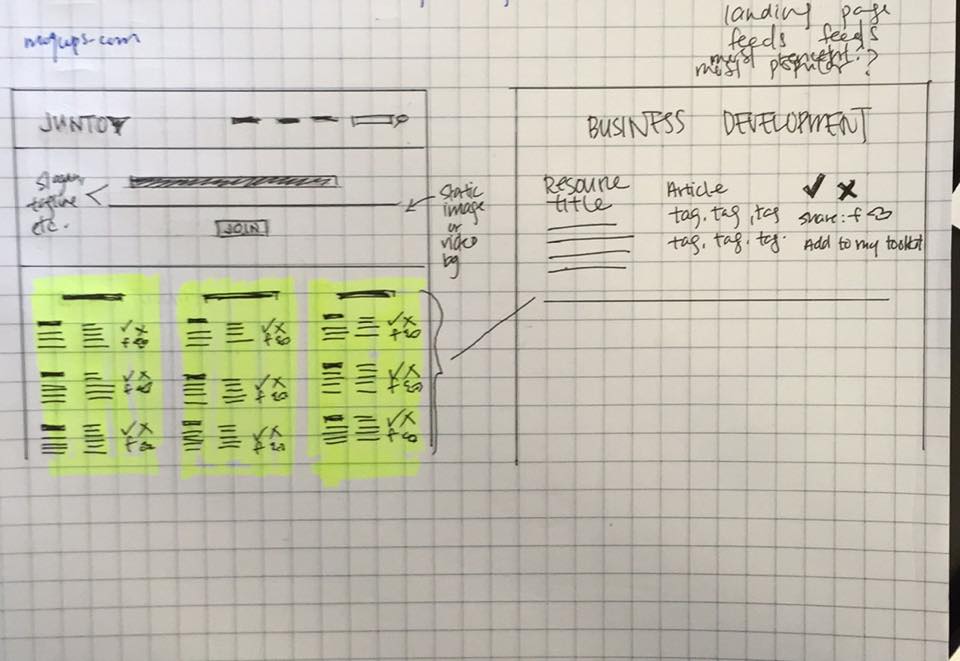 moqups.com
landing page
feeds feeds
most recent?
most popular?
JUNTO
slogan,
tagline
etc.
JOIN
static
image
or
video
bg
BUSINESS DEVELOPMENT
Resource
title
Article
tag, tag, tag
tag, tag, tag.
✓ ✗
share: f
Add to my toolkit